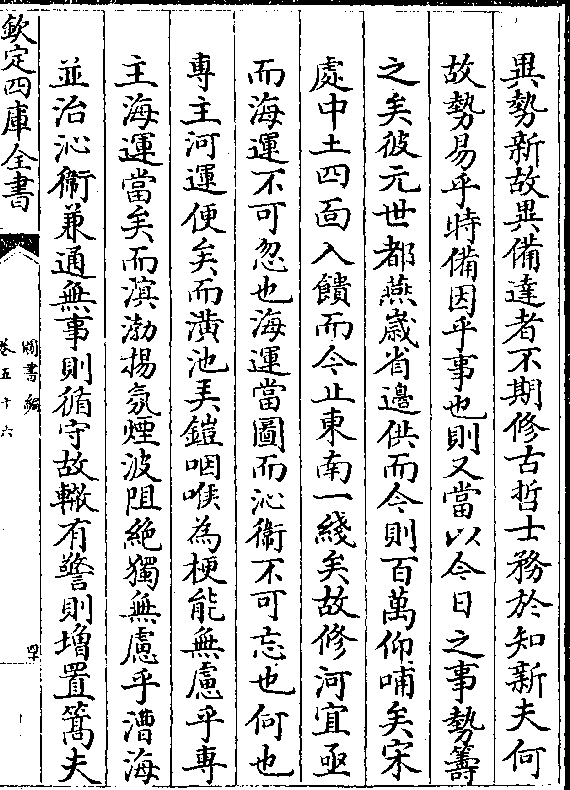 異勢新故異備達者不期修古哲士務於知新夫何
故勢易乎時備因乎事也則又當以今日之事勢籌
之矣彼元世都燕歲省邊供而今則百萬仰哺矣宋
處中土四面入饋而今止東南一綫矣故修河宜亟
而海運不可忽也海運當圖而沁衞不可忘也何也
專主河運便矣而潢池弄鎧咽喉為梗能無慮乎專
主海運當矣而溟渤揚氛煙波阻絶獨無慮乎漕海
並治沁衞兼通無事則循守故轍有警則增置篙夫
欽定四庫全書
圖書編
卷五十六